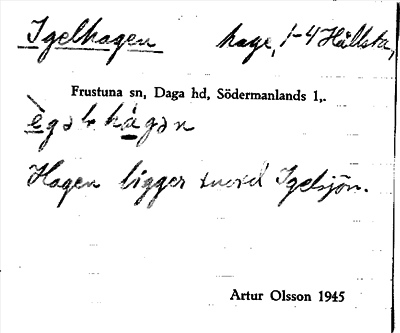 Igelhagen hage, 1-4 Hållsta,
Frustuna sn, Daga hd, Södermanlands l,.
Hagen ligger invid Igelsjön.
Artur Olsson 1945